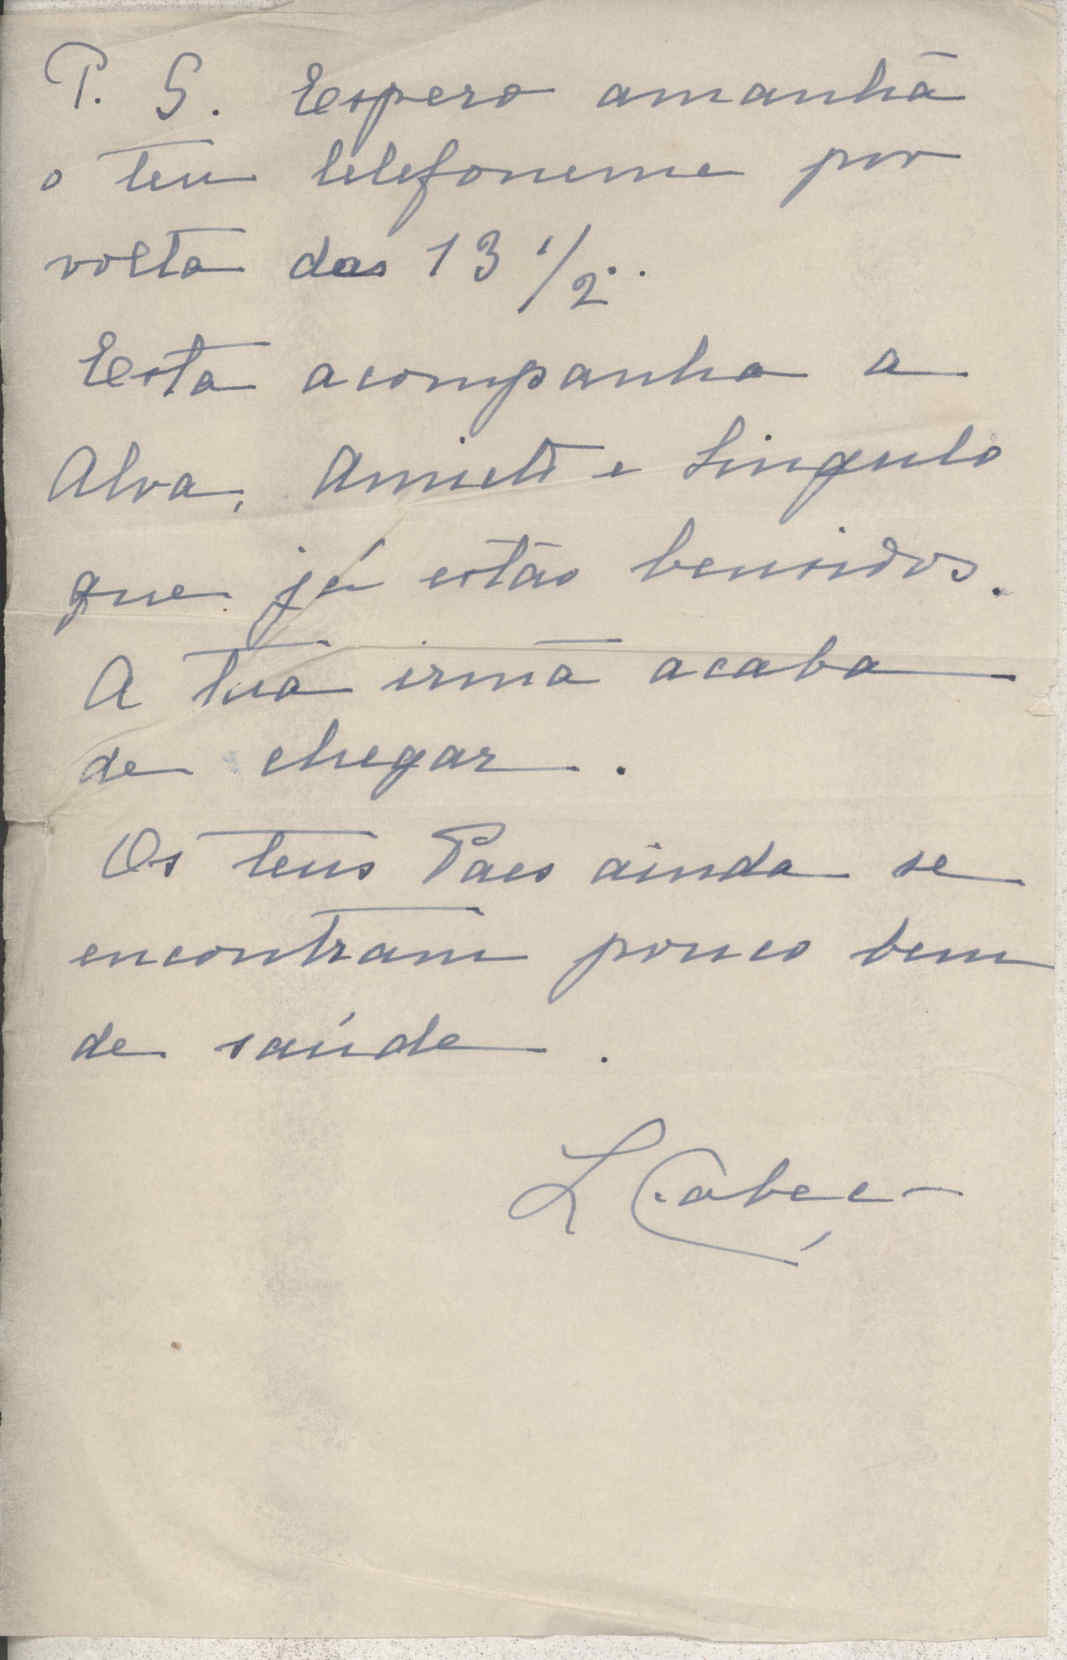 P. S. Espero amanhã
o teu telefoneme por
volta das 13 1/2.
Esta acompanha a
Alva, Amicto e Singulo
que já estão bensidos.
A tua irmã acaba
de chegar.
Os teus Paes ainda se
encontram pouco bem
de saúde.
L